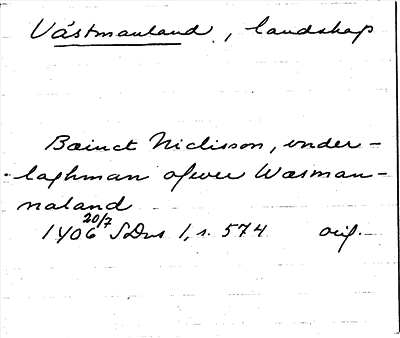 Västmanland, landskap
Bænct Niclisson, vnder-
laghman ofwer Wæsman-
naland
1406 20/7 SDns 1, s. 574 orig.